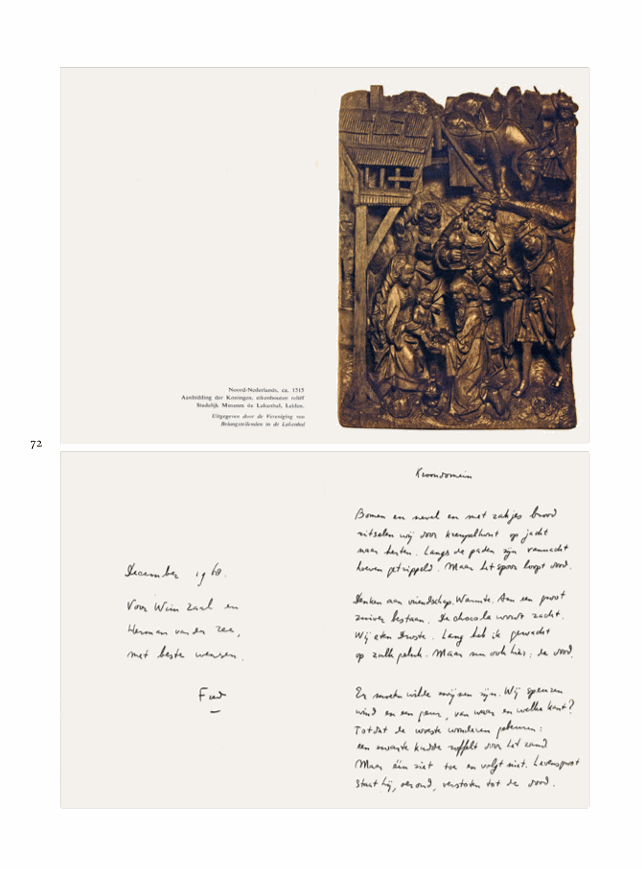 Noord-Nederlands, ca. 1515
Aanbidding der Koningen, eikenhouten reliëf
Stedelijk Museum de Lakenhal, Leiden.
Uitgegeven door de Vereniging van
Belangstellenden in de Lakenhal
72
December 1968.
Voor Wim Zaal en
Herman van der Zee,
met beste wensen.
Fred
Kroondomein
Bomen en nevel en met zakjes brood
ritselen wij door krempelhout op jacht
naar herten. Langs de paden zijn vannacht
hoeven getrippeld. Maar het spoor loopt dood.
Denken aan vriendschap. Warmte. Aan een groot
zuiver bestaan. De chocola wordt zacht.
Wij eten Droste. Lang heb ik gewacht
op zulk geluk. Maar nu ook hier: de dood.
Er moeten wilde zwijnen zijn. Wij speuren
wind en een geur, van waar en welke kant?
Totdat de woeste wonderen gebeuren:
een zwarte kudde roffelt door het zand.
Maar één ziet toe en volgt niet. Levensgroot
staat hij, gezond, verstoten tot de dood.